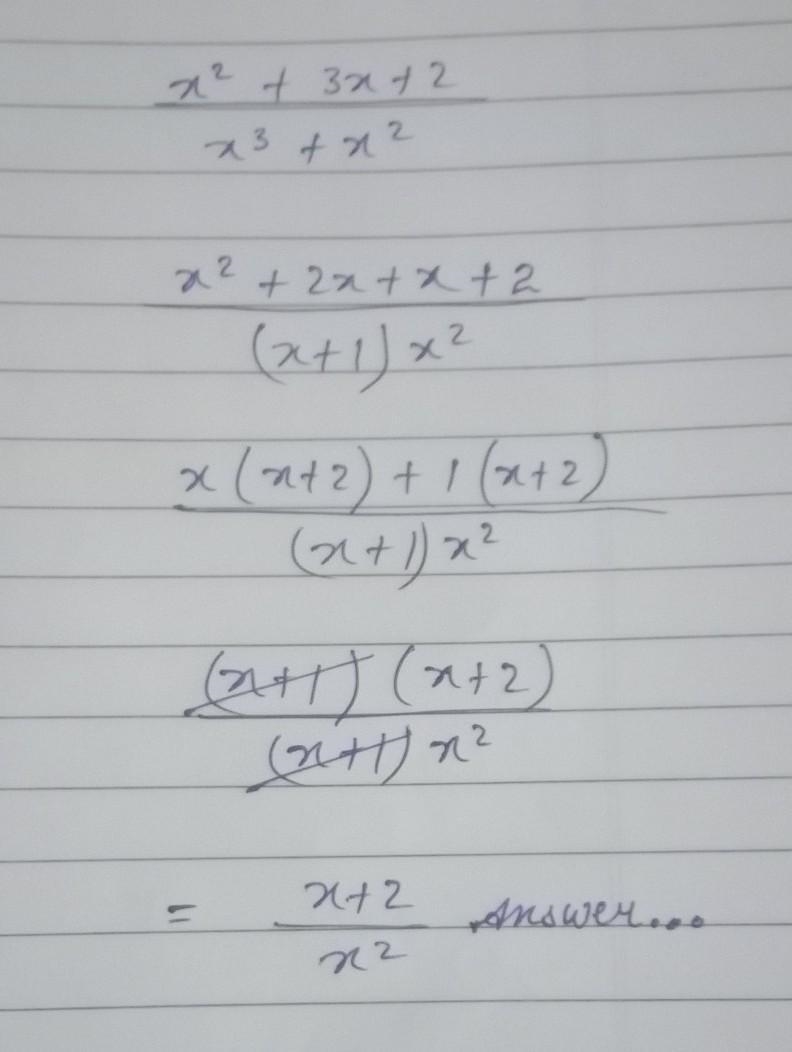 x² + 3x + 2
x³ + x²
x² + 2x + x + 2
(x+1) x²
x (x+2) + 1 (x+2)
(x+1) x²
(x+1) (x+2)
(x+1) x²
= x+2
x² Answer...